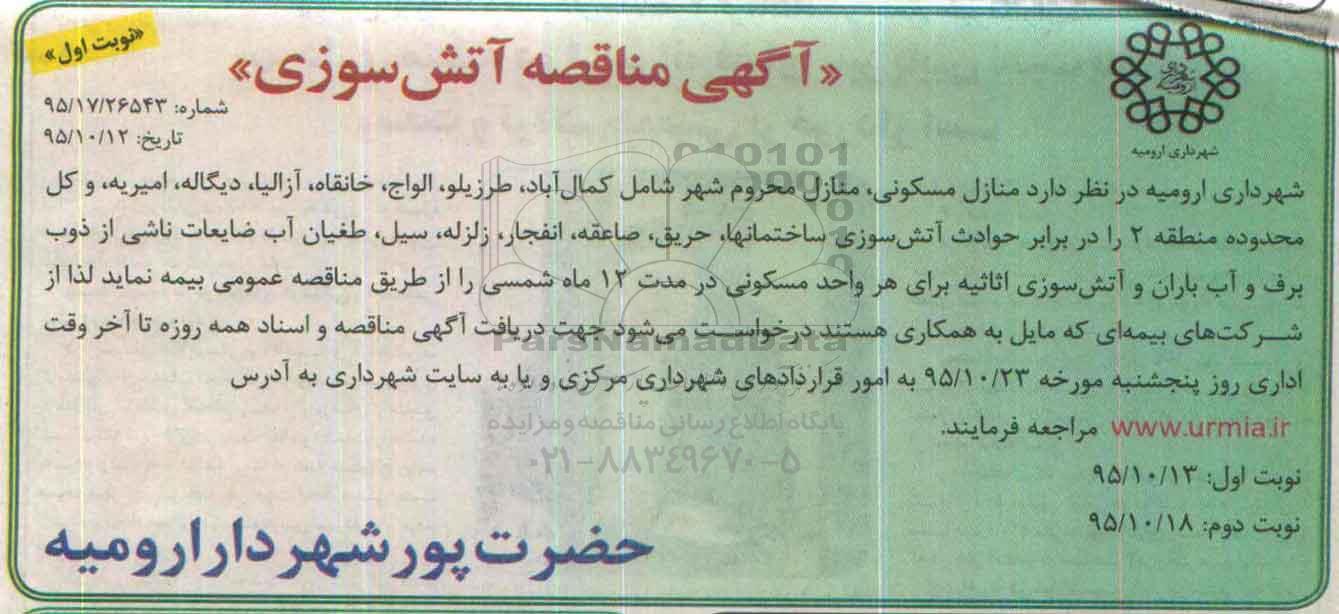 «نوبت اول»
«آگهی مناقصه آتش‌سوزی»
شماره: ۹۵/۱۷/۲۶۵۴۳
تاریخ: ۹۵/۱۰/۱۲
شهرداری ارومیه
شهرداری ارومیه در نظر دارد منازل مسکونی، منازل محروم شهر شامل کمال‌آباد، طرزیلو، الواج، خانقاه، آزالیا، دیگاله، امیریه، و کل
محدوده منطقه ۲ را در برابر حوادث آتش‌سوزی ساختمانها، حریق، صاعقه، انفجار، زلزله، سیل، طغیان آب ضایعات ناشی از ذوب
برف و آب باران و آتش‌سوزی اثاثیه برای هر واحد مسکونی در مدت ۱۲ ماه شمسی را از طریق مناقصه عمومی بیمه نماید لذا از
شرکت‌های بیمه‌ای که مایل به همکاری هستند درخواست می‌شود جهت دریافت آگهی مناقصه و اسناد همه روزه تا آخر وقت
اداری روز پنجشنبه مورخه ۹۵/۱۰/۲۳ به امور قراردادهای شهرداری مرکزی و یا به سایت شهرداری به آدرس
www.urmia.ir مراجعه فرمایند.
نوبت اول: ۹۵/۱۰/۱۳
نوبت دوم: ۹۵/۱۰/۱۸
حضرت پور شهردار ارومیه
ParsNamadData
پایگاه اطلاع رسانی مناقصه و مزایده
۰۲۱-۸۸۳۴۹۶۷۰-۵